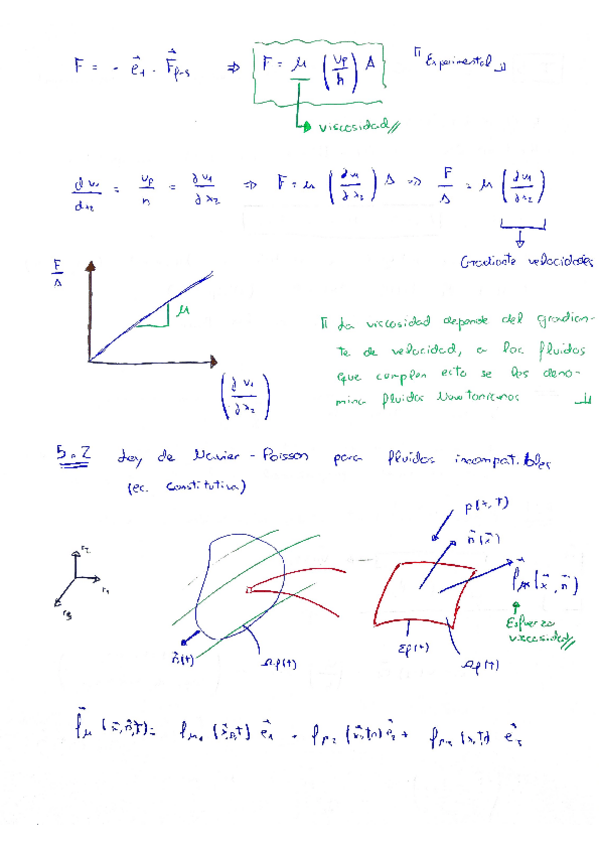 F = - e⃗₁ · F⃗p-s ⇒ F = μ (Up/h) A ⟦Experimental⟧
viscosidad//
dv₁/dx₂ = Up/h = ∂v₁/∂x₂ ⇒ F = μ (∂v₁/∂x₂) A ⇒ F/A = μ (∂v₁/∂x₂)
Gradiente velocidades
F/A
μ
(∂v₁/∂x₂)
⟦ La viscosidad depende del gradien-
te de velocidad, a los fluidos
que cumplen esto se los deno-
mina fluidos Newtonianos ⟧
5.2 Ley de Navier - Poisson para fluidos incompat.bles
(ec. constitutiva)
p(x,t)
n⃗(x⃗)
r₂
r₁
r₃
f⃗μ(x⃗,n⃗)
Esfuerzo
viscosidad//
n⃗(t)
Ωp(t)
Σp(t)
Ωp(t)
f⃗μ (x⃗,n⃗,t) = fμ₁ (x⃗,n,t) e⃗₁ + fμ₂ (x⃗,n,t) e⃗₂ + fμ₃ (x,t) e⃗₃